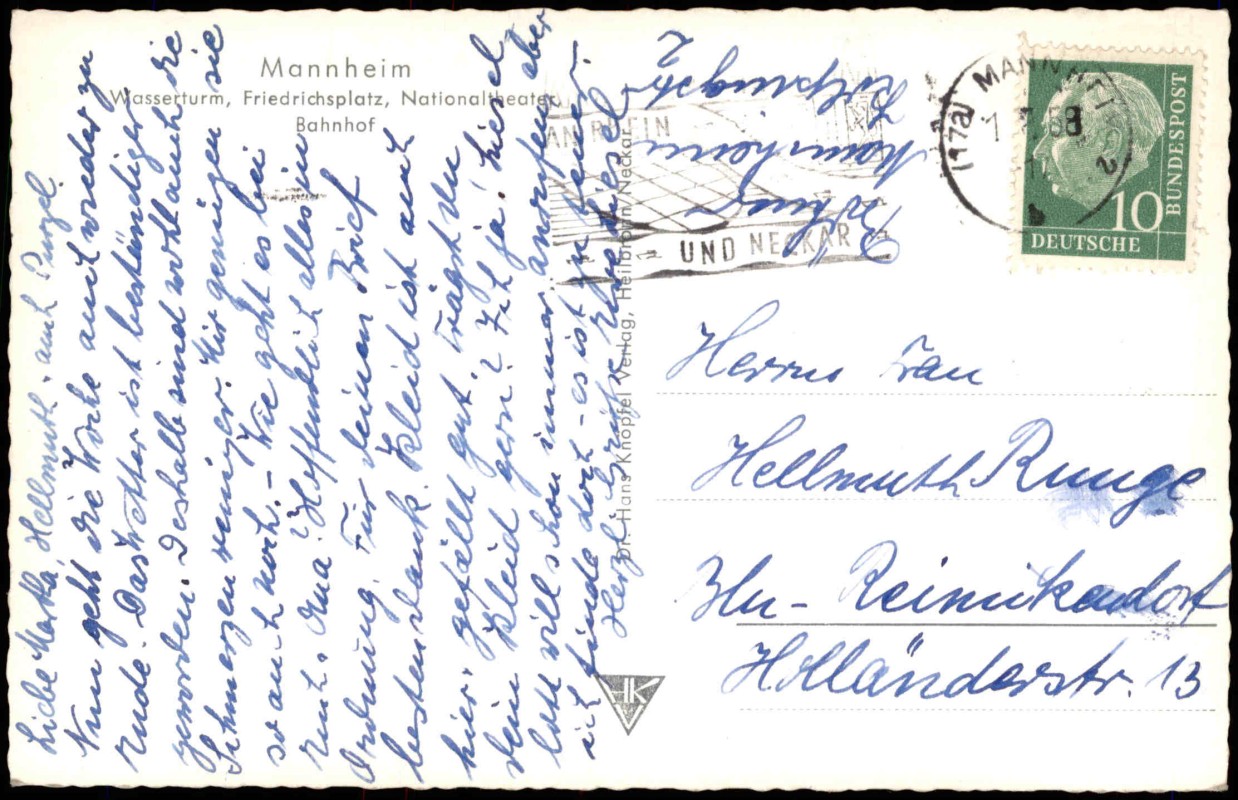 Mannheim
Wasserturm, Friedrichsplatz, Nationaltheater,
Bahnhof
Liebe Marta, Hellmuth, auch Purzel
Nun geht die Woche auch wieder zu
Ende. Das Wetter ist beständiger
geworden. Deshalb sind wohl auch die
Schmerzen weniger. Wir genügen sie
so auch noch. - Wie geht es bei
Euch, Oma? Hoffentlich alles in
Ordnung. Für deinen Brief
besten Dank. Kleid ist auch
hier, gefällt gut. Trägst du
dein Kleid gern? Ich ja!
Lott will schon immer anrufen, aber
ich finde doch - es ist zu teuer.
Herzl. Grüße
Mannheim
Dr. Hans Knöpfel Verlag, Heilbronn/Neckar
HK
AN RHEIN
UND NECKAR
(17a) MANNHEIM
2
DEUTSCHE
BUNDESPOST
10
Herrn Frau
Hellmuth Runge
Bln - Reinickendorf
Holländerstr. 13